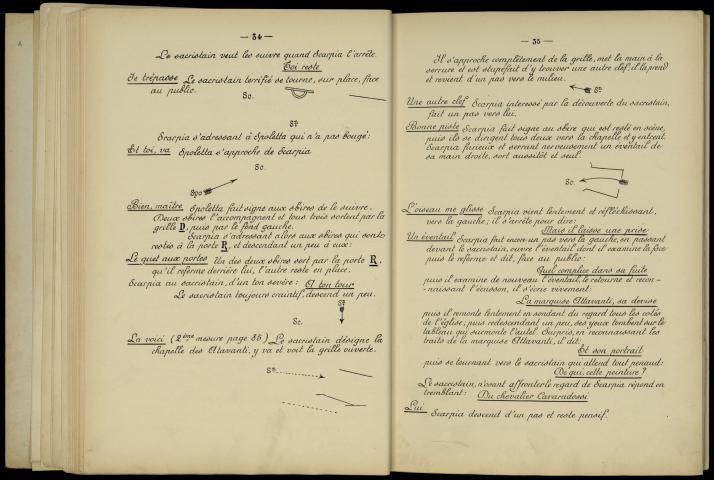 — 34 —
Le sacristain veut les suivre quand Scarpia l'arrête.
Toi reste
Je trépasse Le sacristain terrifié se tourne, sur place, face
au public.
Sc.
St
Scarpia s'adressant à Spoletta qui n'a pas bougé:
Et toi, va Spoletta s'approche de Scarpia
Sc.
Spo
Bien, maître Spoletta fait signe aux sbires de le suivre.
Deux sbires l'accompagnent et tous trois sortent par la
grille D, puis par le fond gauche.
Scarpia s'adressant alors aux sbires qui sont
restés à la porte R, et descendant un peu à eux:
Le guet aux portes Un des deux sbires sort par la porte R,
qu'il referme derrière lui, l'autre reste en place.
Scarpia au sacristain, d'un ton sévère: A ton tour
Le sacristain toujours craintif, descend un peu.
St
Sc.
La voici (2ème mesure page 36) Le sacristain désigne la
chapelle des Attavanti, y va et voit la grille ouverte.
St.
— 35 —
Il s'approche complètement de la grille, met la main à la
serrure et est stupéfait d'y trouver une autre clef; il la prend
et revient d'un pas vers le milieu.
St
Une autre clef Scarpia interessé par la découverte du sacristain,
fait un pas vers lui.
Bonne piste Scarpia fait signe au sbire qui est resté en scène,
puis ils se dirigent tous deux vers la chapelle et y entrent.
Scarpia furieux et serrant nerveusement un éventail de
sa main droite, sort aussitôt et seul.
Sc.
L'oiseau me glisse Scarpia vient lentement et réfléchissant,
vers la gauche; il s'arrête pour dire:
Mais il laisse une prise
Un éventail Scarpia fait encor un pas vers la gauche, en passant
devant le sacristain, ouvre l'éventail dont il examine la face
puis le referme et dit, face au public:
Quel complice dans sa fuite
puis il examine de nouveau l'éventail, le retourne et recon-
-naissant l'écusson, il s'écrie vivement:
La marquise Attavanti, sa devise
puis il remonte lentement en sondant du regard tous les cotés
de l'église, puis redescendant un peu, ses yeux tombent sur le
tableau qui surmonte l'autel. Surpris, en reconnaissant les
traits de la marquise Attavanti, il dit:
Et son portrait
puis se tournant vers le sacristain qui attend tout penaud:
De qui, cette peinture?
Le sacristain, n'osant affronter le regard de Scarpia répond en
tremblant: Du chevalier Cavaradossi
Lui Scarpia descend d'un pas et reste pensif.